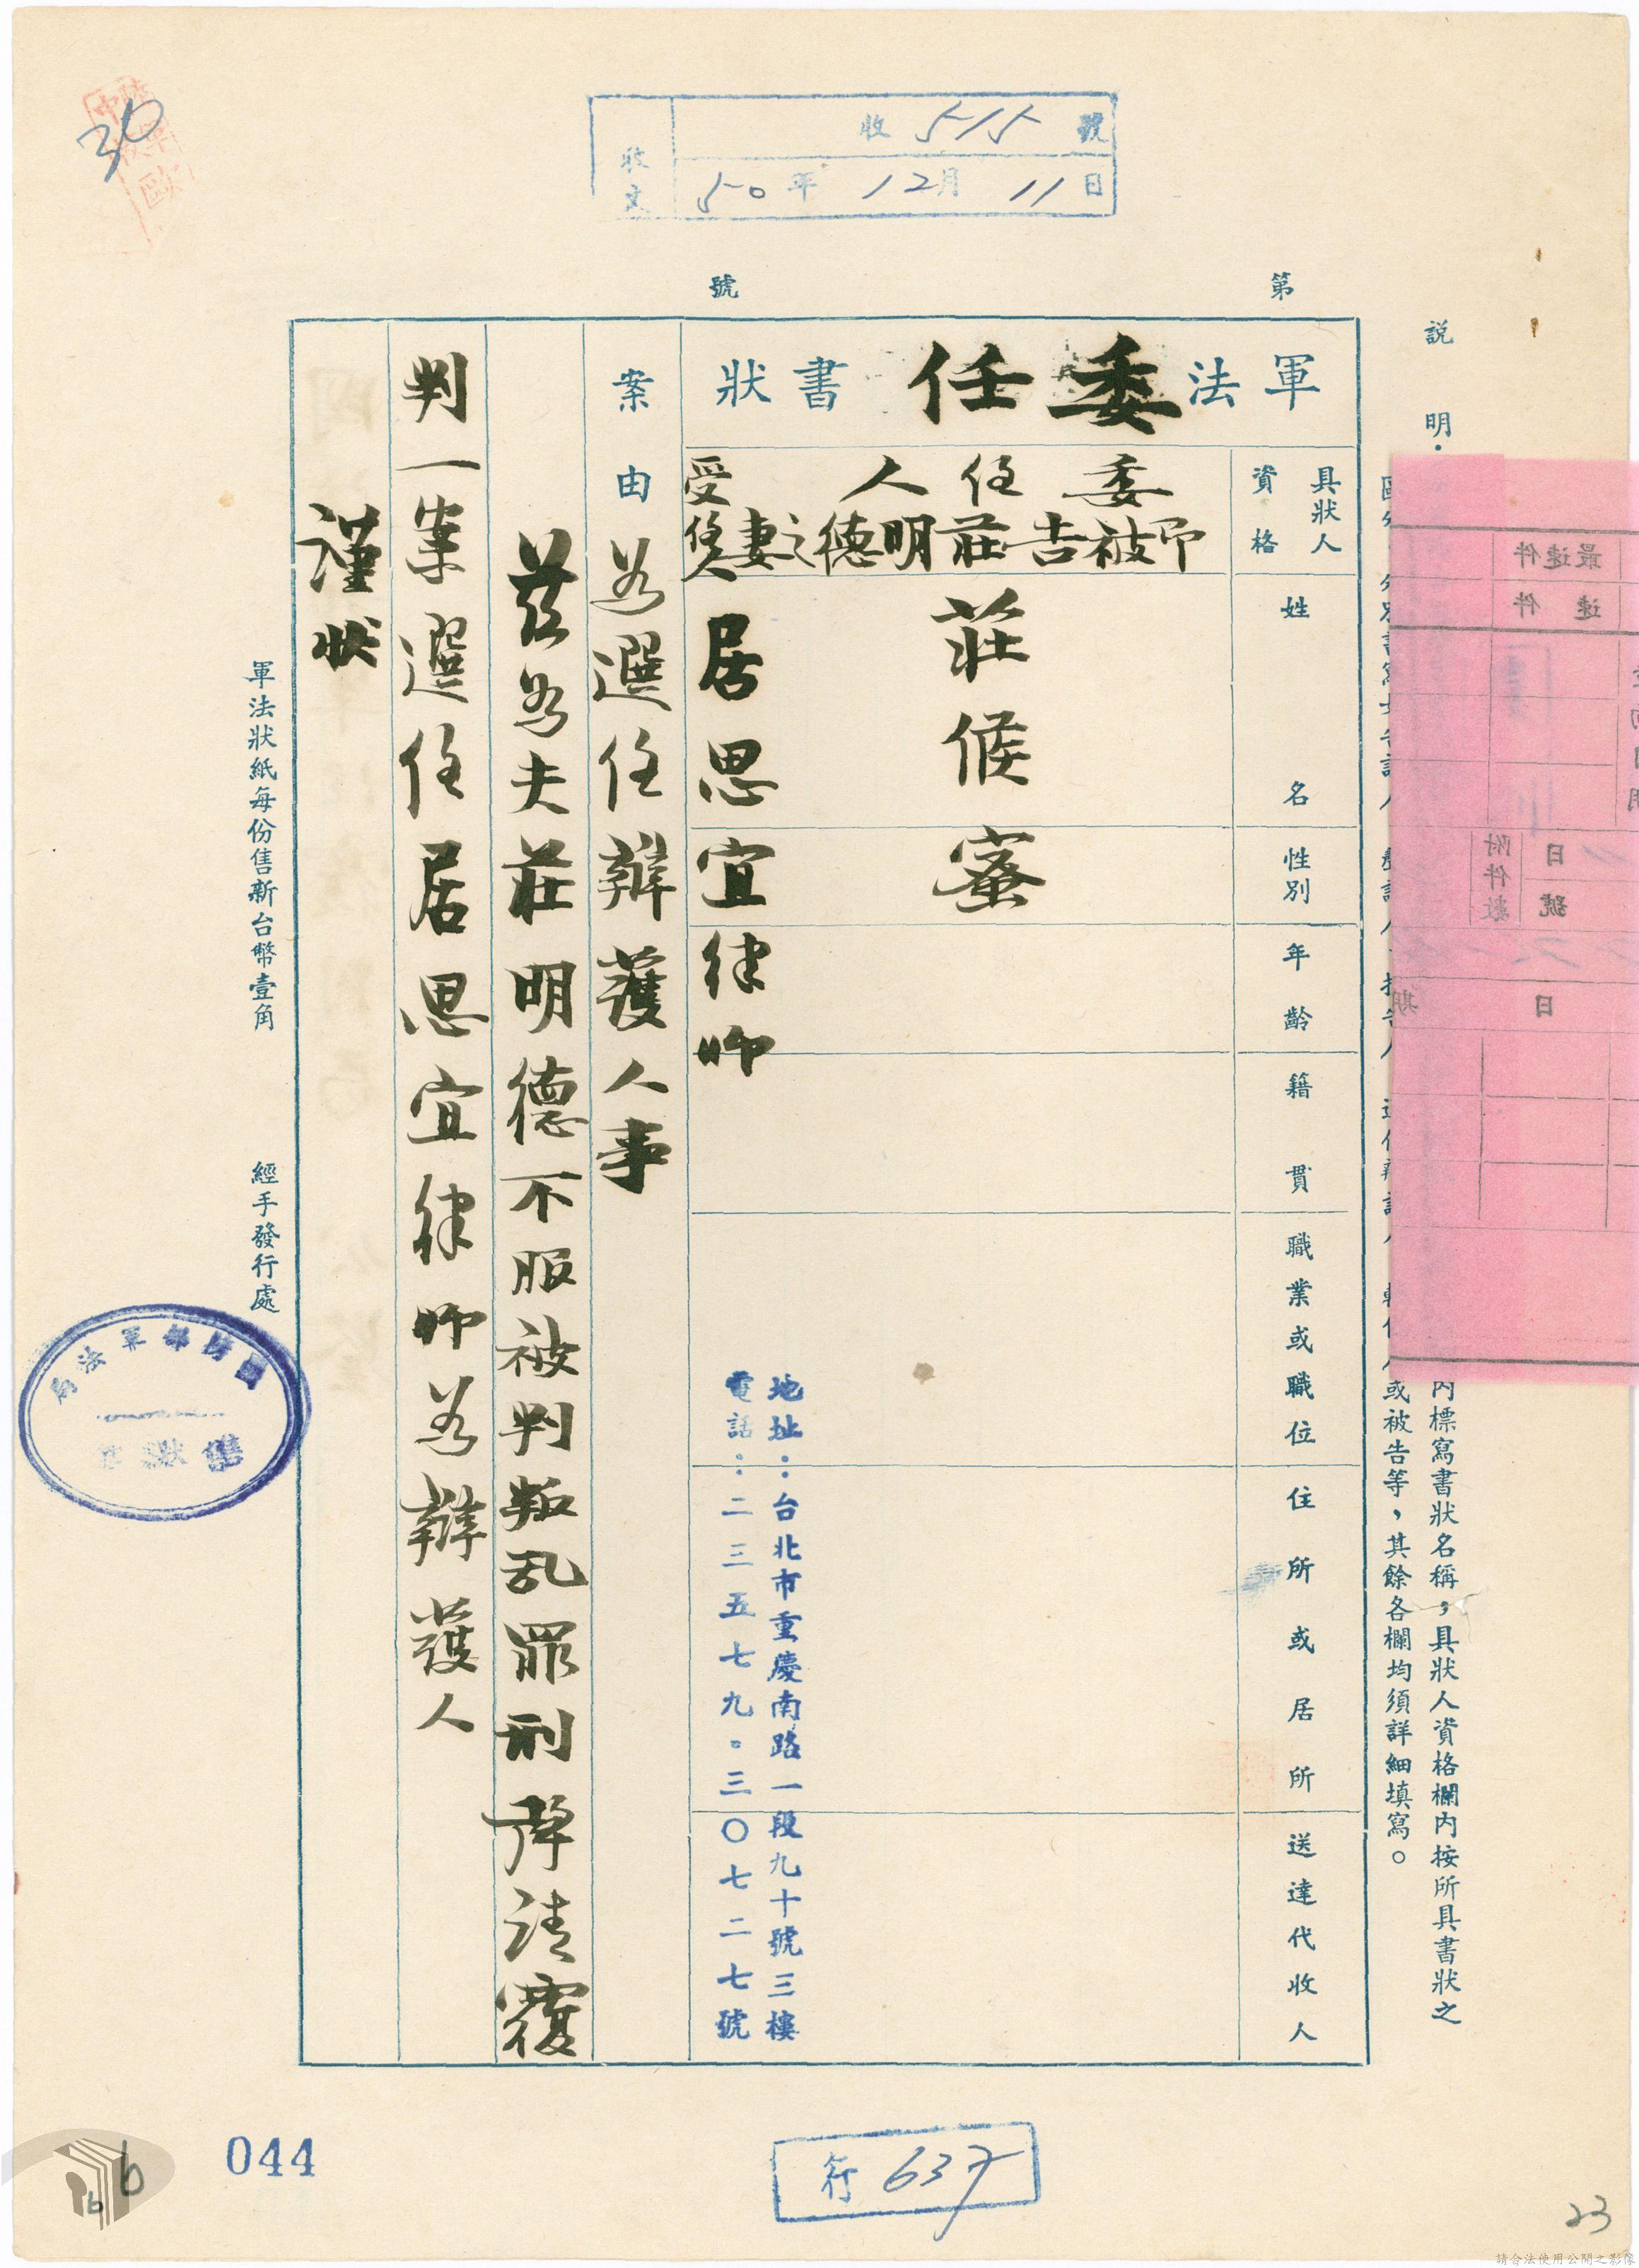 收 515 號
收文
50年 12月 11日
36
第 號
説明
內標寫書狀名稱，具狀人資格欄內按所具書狀之
或被告等，其餘各欄均須詳細填寫。
最速件
速件
附件數
日
號
日期
軍法委任書狀
具狀人資格
姓名
性別
年齡
籍貫
職業或職位
住所或居所
送達代收人
委任人
即被告莊明德之妻
莊候蜜
受任人
居思宜律師
地址：台北市重慶南路一段九十號三樓
電話：二三五七九。三〇七二七號
案由
為選任辯護人事
茲為夫莊明德不服被判叛乱罪刑聲請覆
判一案選任居思宜律師為辯護人
謹狀
軍法狀紙每份售新台幣壹角 經手發行處
國防部軍法局
044
行 637
23
請合法使用公開之影像